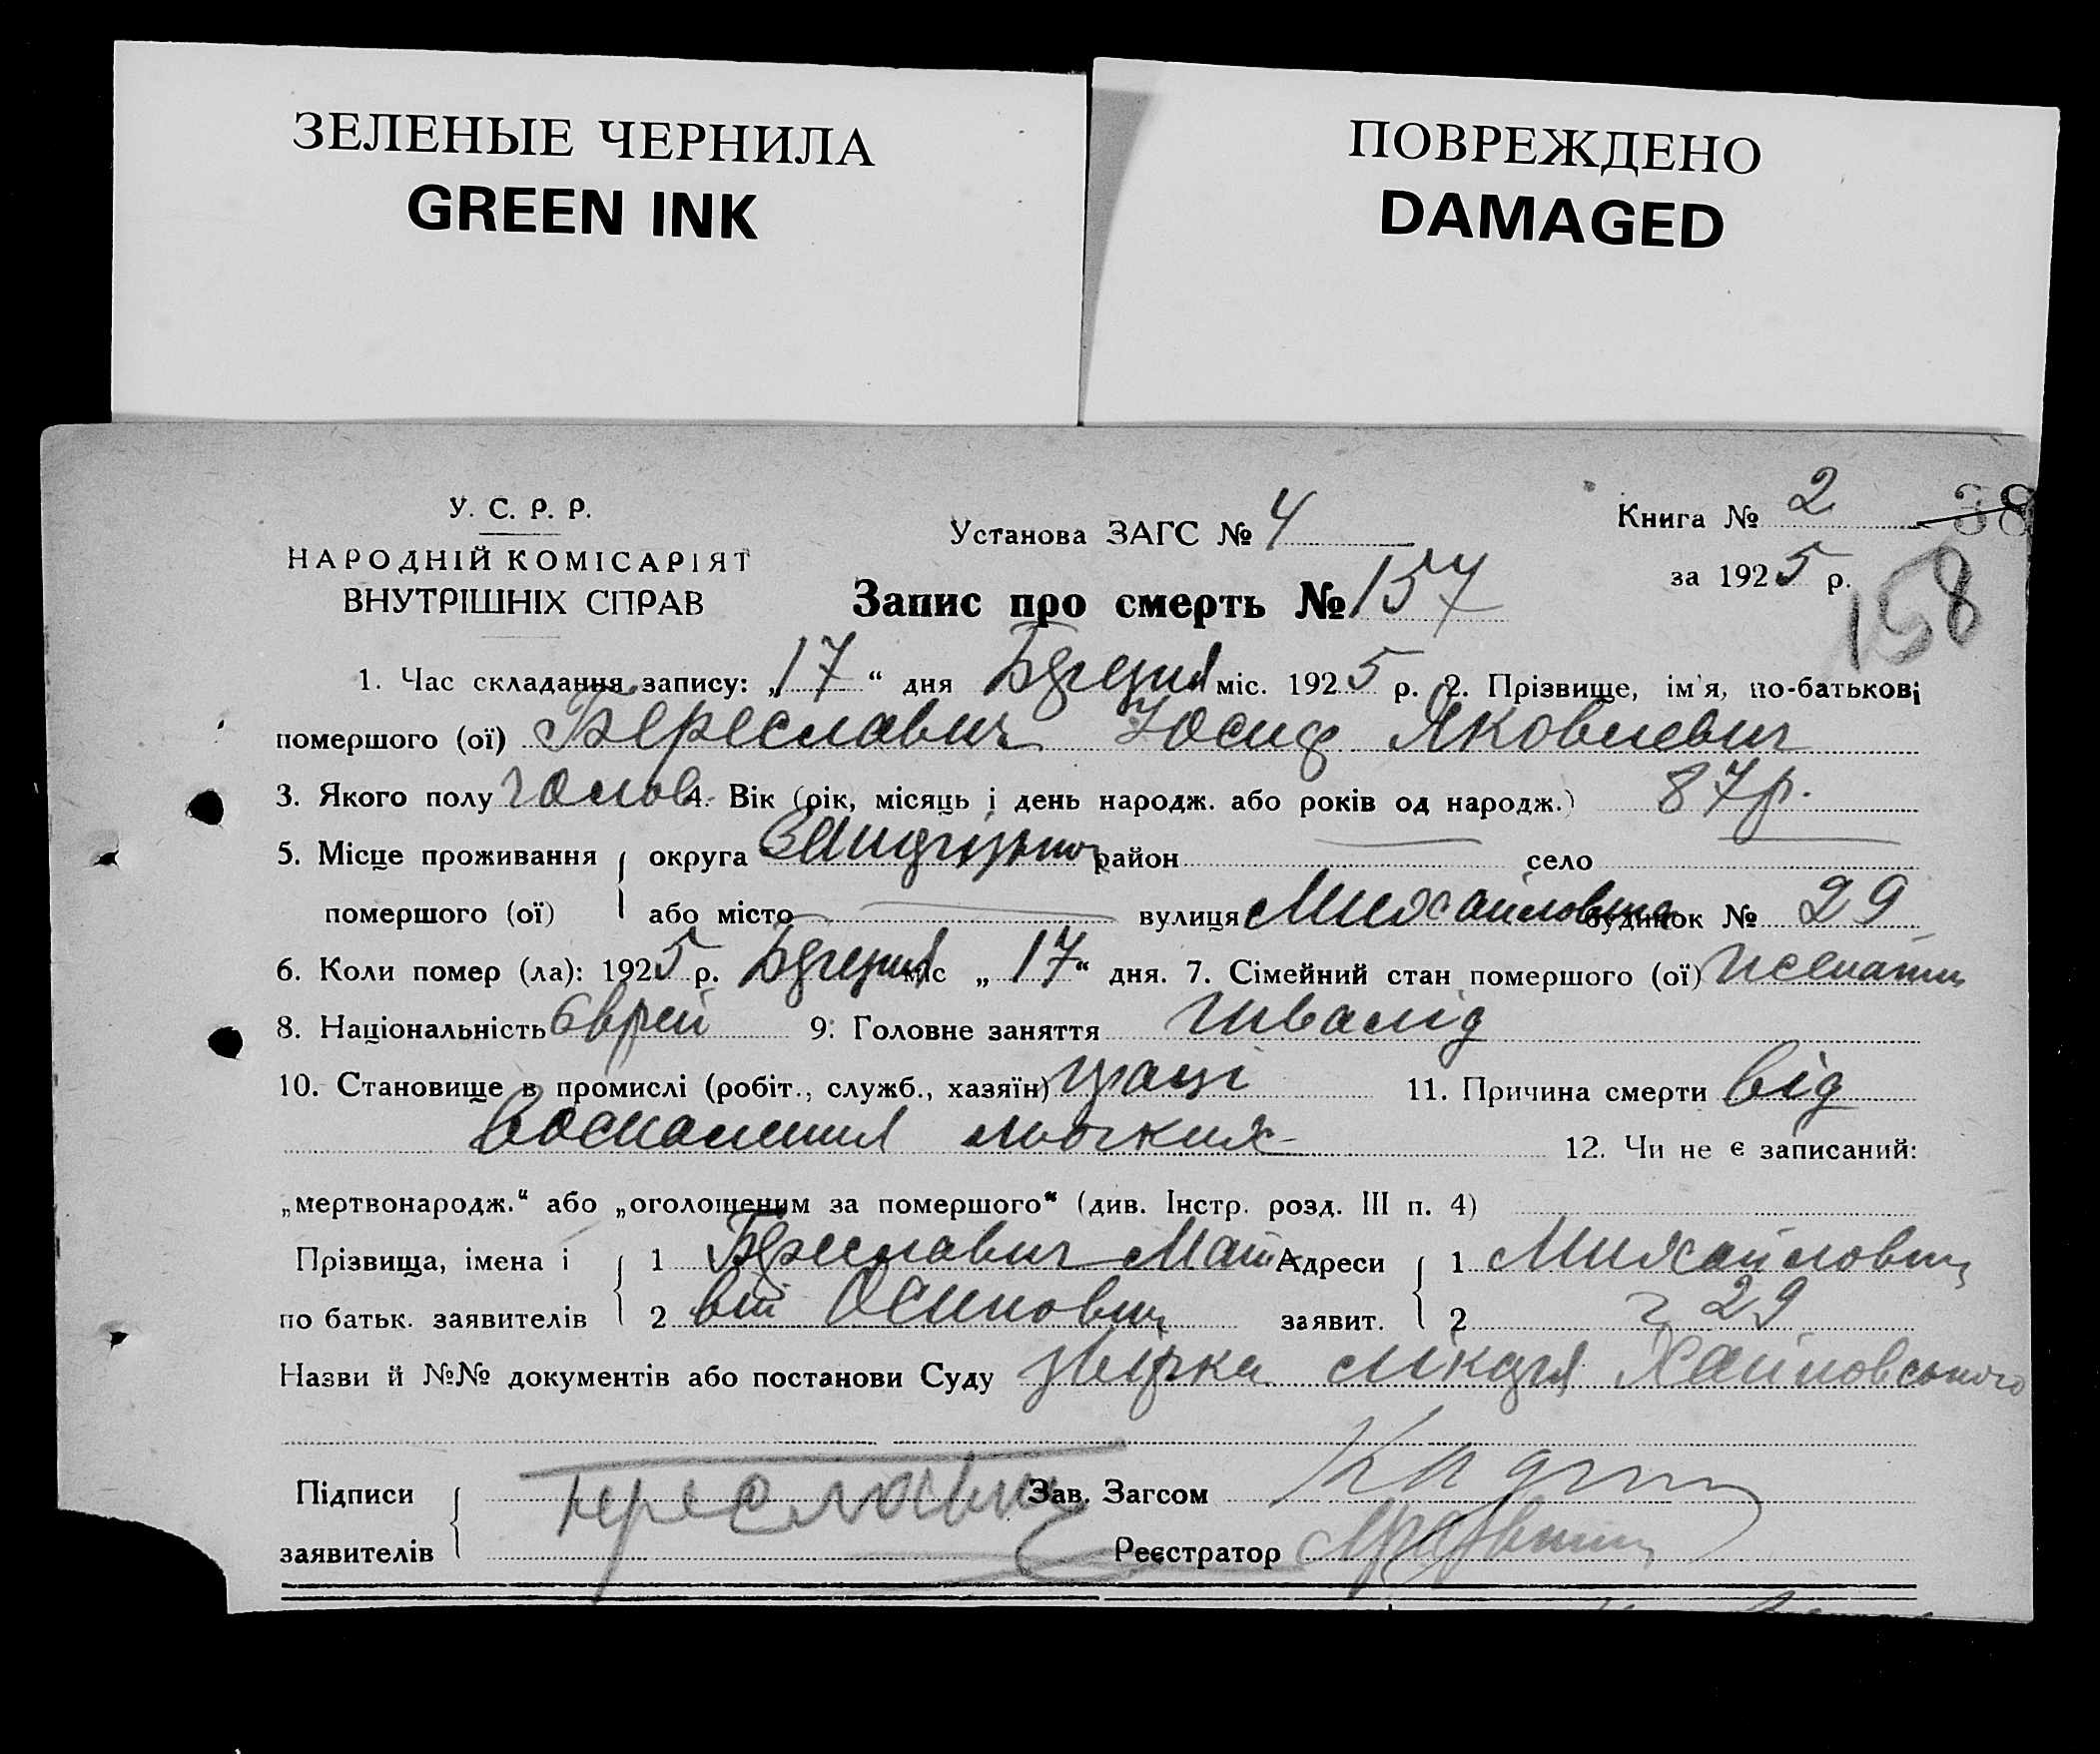 ЗЕЛЕНЫЕ ЧЕРНИЛА
GREEN INK
ПОВРЕЖДЕНО
DAMAGED
У. С. Р. Р.
НАРОДНІЙ КОМІСАРІЯТ
ВНУТРІШНІХ СПРАВ
Установа ЗАГС № 4
Книга № 2 38
за 1925 р.
158
Запис про смерть № 157
1. Час складання запису: „17“ дня Березня міс. 1925 р. 2. Прізвище, ім'я, по-батькові
помершого (ої) Береславич Йосиф Яковлевич
3. Якого полу чолов. 4. Вік (рік, місяць і день народж. або років од народж.) 87 р.
5. Місце проживання округа район село
помершого (ої) або місто вулиця Михайловска будинок № 29
6. Коли помер (ла): 1925 р. Березня міс „17“ дня. 7. Сімейний стан помершого (ої)
8. Національність Єврей 9. Головне заняття инвалід
10. Становище в промислі (робіт., служб., хазяїн) праці 11. Причина смерти від
воспаления легких
12. Чи не є записаний:
„мертвонародж.“ або „оголошеним за помершого“ (див. Інстр. розд. III п. 4)
Прізвища, імена і 1 Береславич Мат Адреси 1 Михайловск
по батьк. заявителів 2 вій Осипович заявит. 2 29
Назви й №№ документів або постанови Суду лікаря
Підписи Зав. Загсом
заявителів Реєстратор